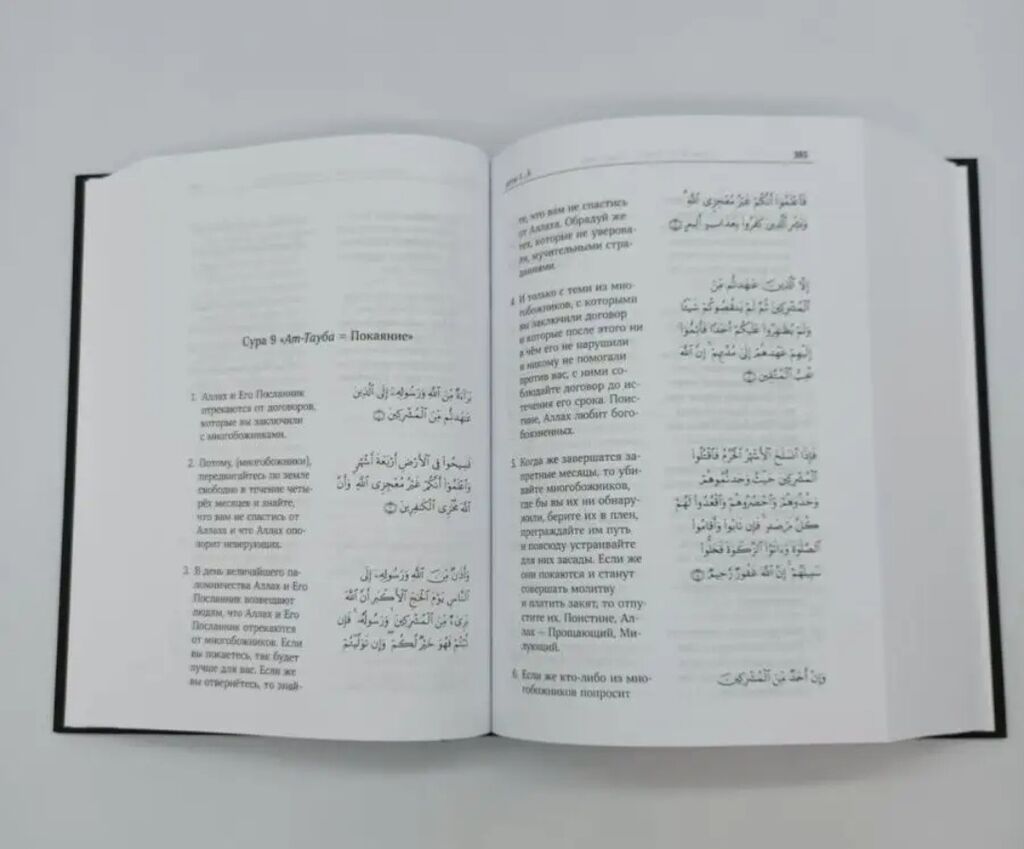 Сура 9 «Ат-Тауба = Покаяние»
1. Аллах и Его Посланник
отрекаются от договоров,
которые вы заключили
с многобожниками.
بَرَآءَةٌ مِّنَ ٱللَّهِ وَرَسُولِهِۦٓ إِلَى ٱلَّذِينَ
عَـٰهَدتُّم مِّنَ ٱلْمُشْرِكِينَ ۝١
2. Потому, (многобожники),
передвигайтесь по земле
свободно в течение четы-
рёх месяцев и знайте,
что вам не спастись от
Аллаха и что Аллах опо-
зорит неверующих.
فَسِيحُوا۟ فِى ٱلْأَرْضِ أَرْبَعَةَ أَشْهُرٍ
وَٱعْلَمُوٓا۟ أَنَّكُمْ غَيْرُ مُعْجِزِى ٱللَّهِ وَأَنَّ
ٱللَّهَ مُخْزِى ٱلْكَـٰفِرِينَ ۝٢
3. В день величайшего па-
ломничества Аллах и Его
Посланник возвещают
людям, что Аллах и Его
Посланник отрекаются
от многобожников. Если
вы покаетесь, так будет
лучше для вас. Если же
вы отвернётесь, то знай-
وَأَذَٰنٌ مِّنَ ٱللَّهِ وَرَسُولِهِۦٓ إِلَى
ٱلنَّاسِ يَوْمَ ٱلْحَجِّ ٱلْأَكْبَرِ أَنَّ ٱللَّهَ
بَرِىٓءٌ مِّنَ ٱلْمُشْرِكِينَ وَرَسُولُهُۥ فَإِن
تُبْتُمْ فَهُوَ خَيْرٌ لَّكُمْ وَإِن تَوَلَّيْتُمْ
385
те, что вам не спастись
от Аллаха. Обрадуй же
тех, которые не уверова-
ли, мучительными стра-
даниями.
فَٱعْلَمُوٓا۟ أَنَّكُمْ غَيْرُ مُعْجِزِى ٱللَّهِ
وَبَشِّرِ ٱلَّذِينَ كَفَرُوا۟ بِعَذَابٍ أَلِيمٍ ۝٣
4. И только с теми из мно-
гобожников, с которыми
вы заключили договор
и которые после этого ни
в чём его не нарушили
и никому не помогали
против вас, с ними со-
блюдайте договор до ис-
течения его срока. Поис-
тине, Аллах любит бого-
боязненных.
إِلَّا ٱلَّذِينَ عَـٰهَدتُّم مِّنَ
ٱلْمُشْرِكِينَ ثُمَّ لَمْ يَنقُصُوكُمْ شَيْـًٔا
وَلَمْ يُظَـٰهِرُوا۟ عَلَيْكُمْ أَحَدًا فَأَتِمُّوٓا۟
إِلَيْهِمْ عَهْدَهُمْ إِلَىٰ مُدَّتِهِمْ إِنَّ ٱللَّهَ
يُحِبُّ ٱلْمُتَّقِينَ ۝٤
5. Когда же завершатся за-
претные месяцы, то уби-
вайте многобожников,
где бы вы их ни обнару-
жили, берите их в плен,
преграждайте им путь
и повсюду устраивайте
для них засады. Если же
они покаются и станут
совершать молитву
и платить закят, то отпу-
стите их. Поистине, Ал-
лах – Прощающий, Ми-
лующий.
فَإِذَا ٱنسَلَخَ ٱلْأَشْهُرُ ٱلْحُرُمُ فَٱقْتُلُوا۟
ٱلْمُشْرِكِينَ حَيْثُ وَجَدتُّمُوهُمْ
وَخُذُوهُمْ وَٱحْصُرُوهُمْ وَٱقْعُدُوا۟ لَهُمْ
كُلَّ مَرْصَدٍ فَإِن تَابُوا۟ وَأَقَامُوا۟
ٱلصَّلَوٰةَ وَءَاتَوُا۟ ٱلزَّكَوٰةَ فَخَلُّوا۟
سَبِيلَهُمْ إِنَّ ٱللَّهَ غَفُورٌ رَّحِيمٌ ۝٥
6. Если же кто-либо из мно-
гобожников попросит
وَإِنْ أَحَدٌ مِّنَ ٱلْمُشْرِكِينَ